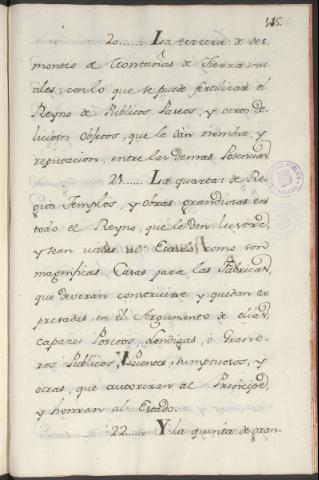 115.
20...... La tercera: de des-
montes de Montañas de Tierra: uti-
tiles; con lo que se puede fertilizar el
Reyno de Públicos Paseos, y otros de
liciosos Objetos, que le dán nombre, y
reputacion, entre las demas Potencias.
21...... La quarta: de Re-
gios Templos, y obras grandiosas en
todo el Reyno, que le den lustre,
y sean utiles al Estado; como son
magnificas Casas para las Fabricas,
que deverán construirse, y quedan ex
presadas en el Argumento de ellas,
capazes Positos, Londigas, ó Grane-
ros Públicos, Puentes, sumptuosos, y
otras, que autorizan al Principe,
y honran al Estado.
22...... Y la quinta: de gran-